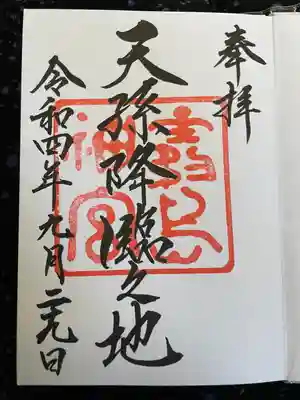 奉拝
天孫降臨之地
令和四年九月二九日